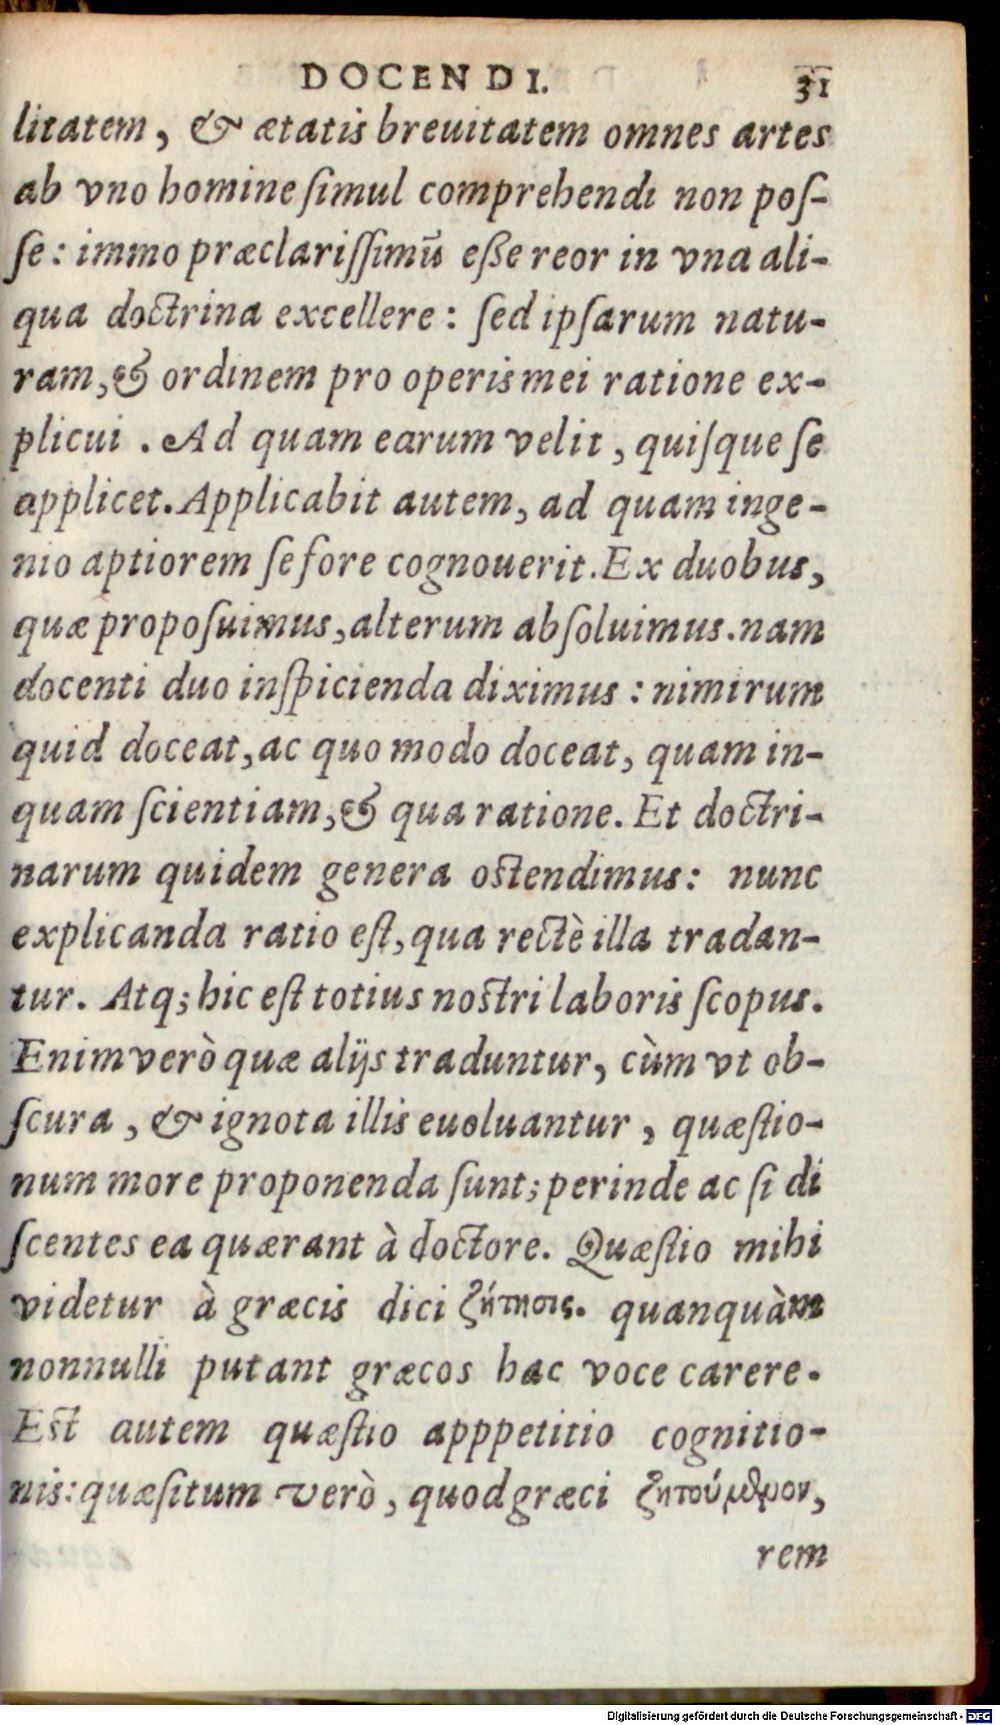 DOCENDI. 31
litatem, & ætatis breuitatem omnes artes
ab vno homine ſimul comprehendi non poſ-
ſe: immo præclariſſimū eſſe reor in vna ali-
qua doctrina excellere: ſed ipſarum natu-
ram, & ordinem pro operis mei ratione ex-
plicui. Ad quam earum velit, quiſque ſe
applicet. Applicabit autem, ad quam inge-
nio aptiorem ſe fore cognouerit. Ex duobus,
quæ propoſuimus, alterum abſoluimus. nam
docenti duo inſpicienda diximus: nimirum
quid doceat, ac quo modo doceat, quam in-
quam ſcientiam, & qua ratione. Et doctri-
narum quidem genera oſtendimus: nunc
explicanda ratio eſt, qua rectè illa tradan-
tur. Atq; hic eſt totius noſtri laboris ſcopus.
Enimverò quæ alijs traduntur, cùm vt ob-
ſcura, & ignota illis euoluantur, quæſtio-
num more proponenda ſunt; perinde ac ſi di
ſcentes ea quærant à doctore. Quæſtio mihi
videtur à græcis dici ζήτησις. quanquàm
nonnulli putant græcos hac voce carere.
Eſt autem quæſtio apppetitio cognitio-
nis: quæſitum verò, quod græci ζητούμενον,
rem
Digitalisierung gefördert durch die Deutsche Forschungsgemeinschaft - DFG